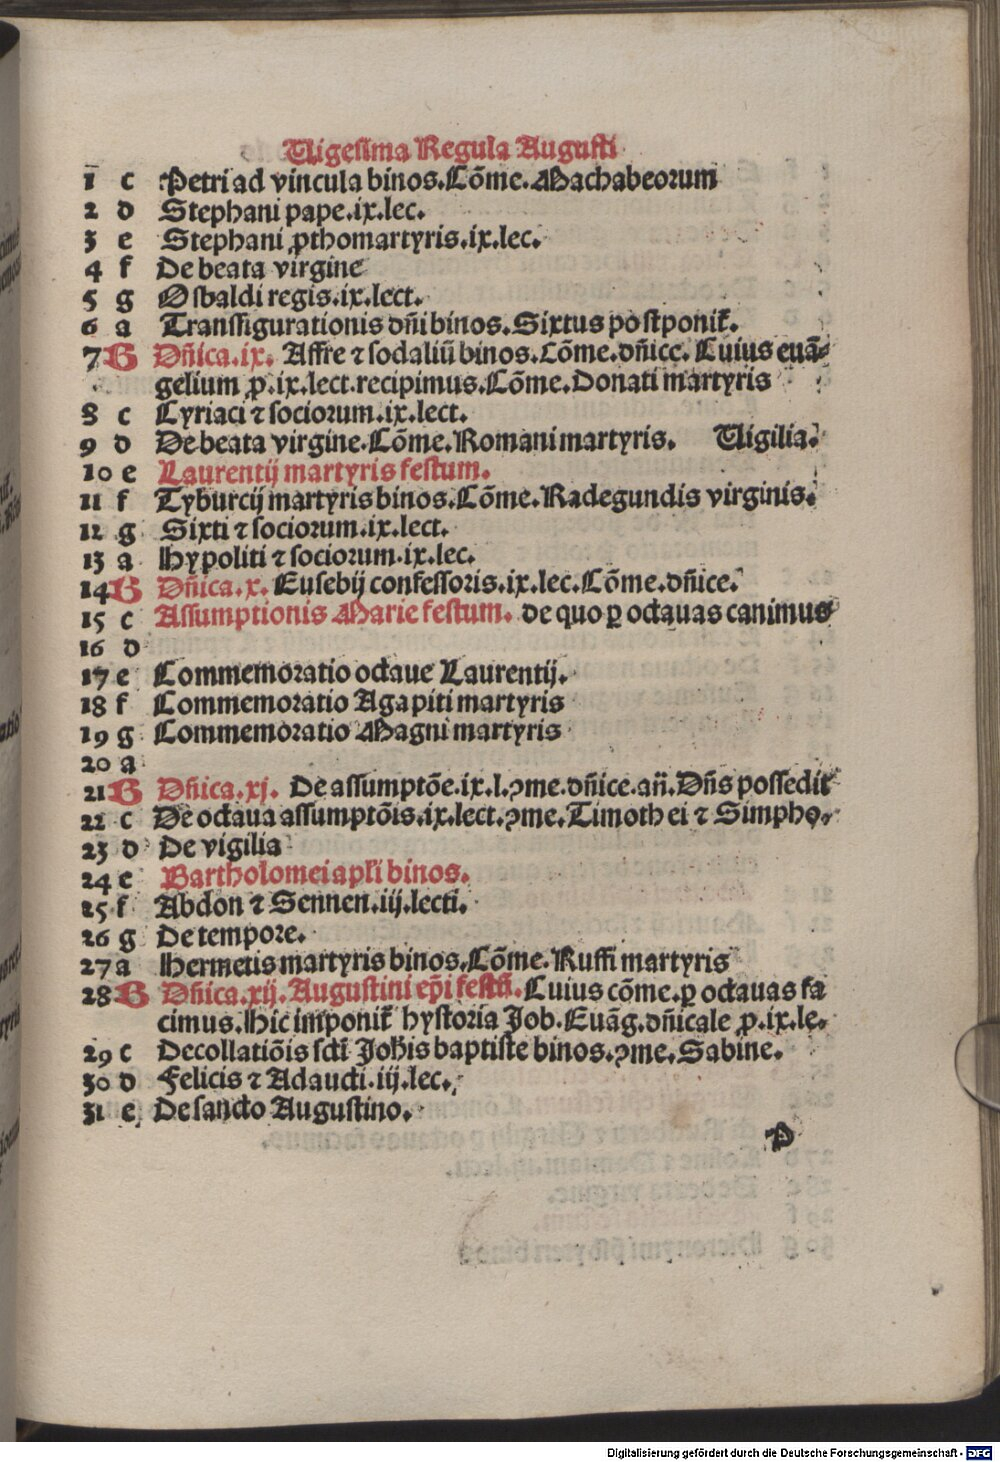 Uigesima Regula Augusti
1 c Petri ad vincula binos. Cõme. Machabeorum
2 d Stephani pape. ix. lec.
3 e Stephani ꝓthomartyris. ix. lec.
4 f De beata virgine
5 g Osbaldi regis. ix. lect.
6 a Transfigurationis dñi binos. Sixtus postponit̃.
7 B Dñica. ix. Affre ⁊ sodaliũ binos. Cõme. dñice. Cuius euã-
gelium ꝓ. ix. lect. recipimus. Cõme. Donati martyris
8 c Cyriaci ⁊ sociorum. ix. lect.
9 d De beata virgine. Cõme. Romani martyris. Uigilia.
10 e Laurentij martyris festum.
11 f Tyburcij martyris binos. Cõme. Radegundis virginis.
12 g Sixti ⁊ sociorum. ix. lect.
13 a Hypoliti ⁊ sociorum. ix. lec.
14 B Dñica. x. Eusebij confessoris. ix. lec. Cõme. dñice.
15 c Assumptionis Marie festum. de quo ꝑ octauas canimus
16 d
17 e Commemoratio octaue Laurentij.
18 f Commemoratio Agapiti martyris
19 g Commemoratio Magni martyris
20 a
21 B Dñica. xj. De assumptõe. ix. l. ꝯme. dñice. añ. Dñs possedit
22 c De octaua assumptõis. ix. lect. ꝯme. Timothei ⁊ Simpho.
23 d De vigilia
24 e Bartholomei apl̃i binos.
25 f Abdon ⁊ Sennen. iij. lecti.
26 g De tempore.
27 a Hermetis martyris binos. Cõme. Ruffi martyris
28 B Dñica. xij. Augustini ep̃i festũ. Cuius cõme. ꝑ octauas fa
cimus. Hic imponit̃ hystoria Job. Euãg. dñicale ꝓ. ix. le.
29 c Decollatiõis sct̃i Joh̃is baptiste binos. ꝯme. Sabine.
30 d Felicis ⁊ Adaucti. iij. lec.
31 e De sancto Augustino.
P
Digitalisierung gefördert durch die Deutsche Forschungsgemeinschaft - DFG